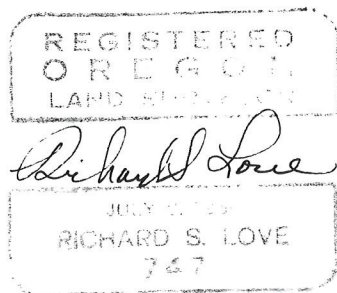 REGISTERED
OREGON
LAND SURVEYOR
Richard S Love
JULY
RICHARD S. LOVE
767